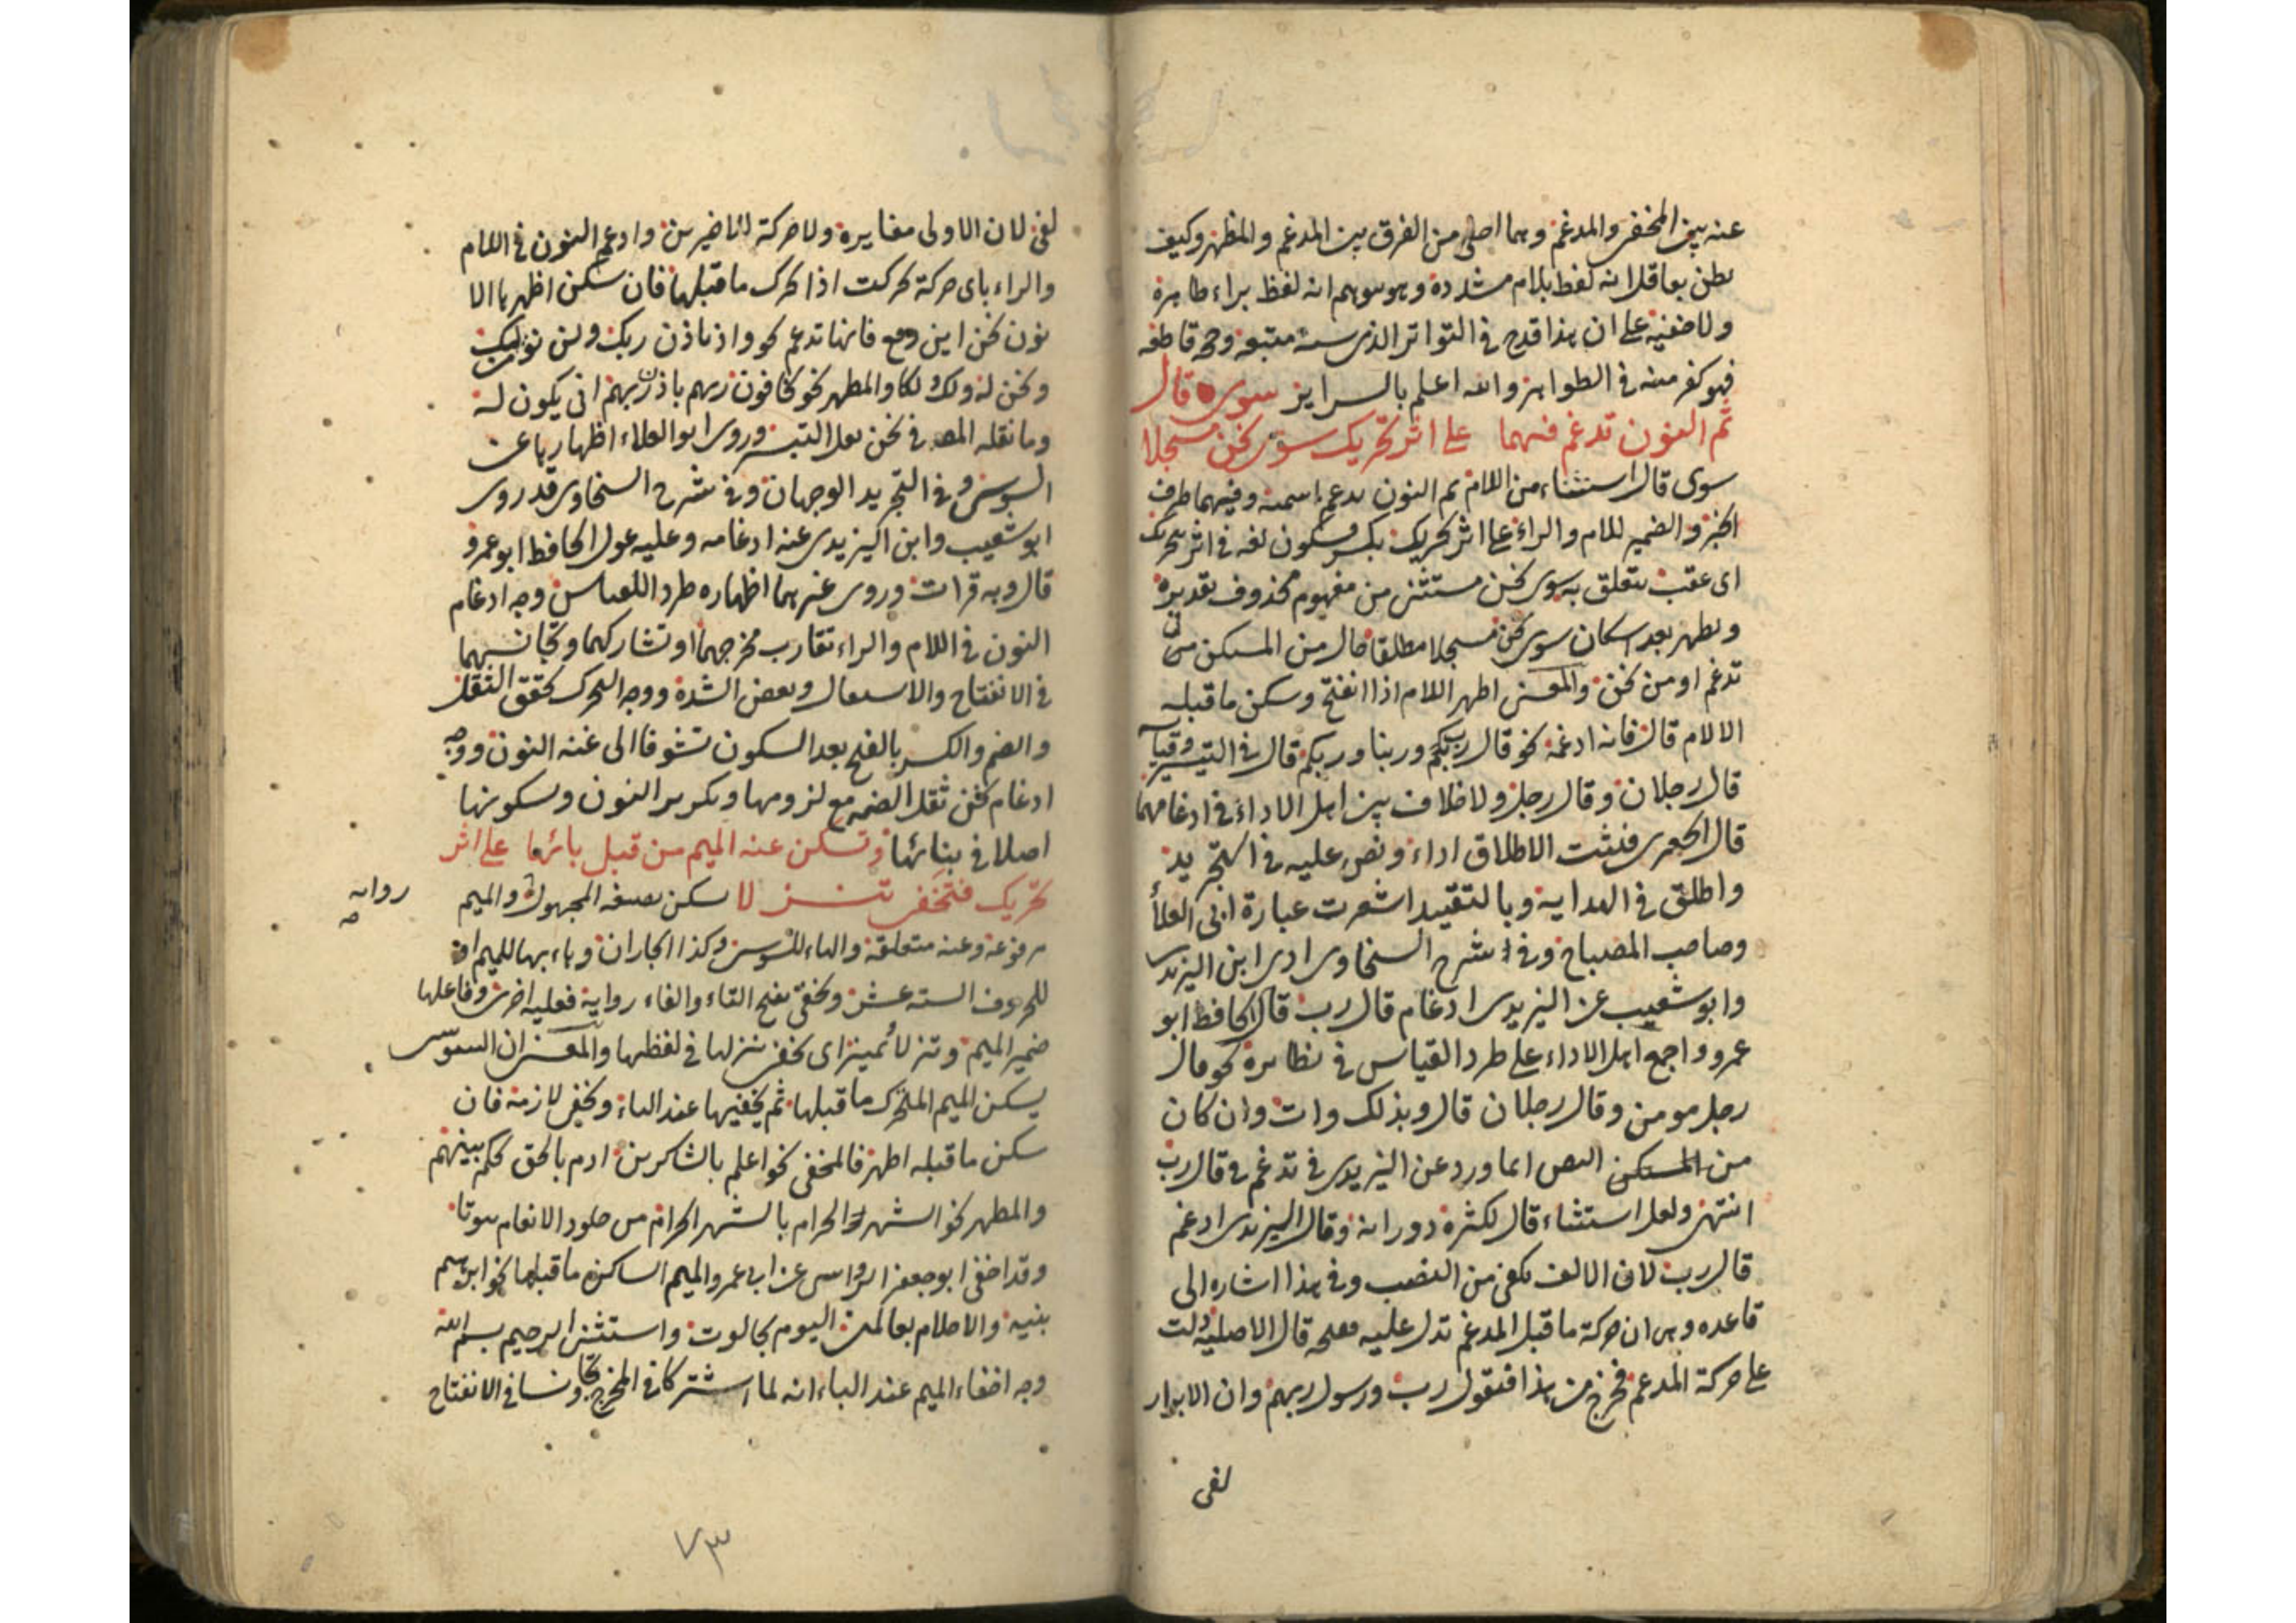 عنه بين المخفى والمدغم وهما اصلى من الفرق بين المدغم والمظهر وكيف
يظن بعاقل انه لفظ بلام مشددة وهو يوهم انه لفظ براء طاهرة
ولا خفية على ان هذا قدح فى التواتر الذى سنة متبعة وحجة قاطعة
فهو كفر منه فى الظواهر والله اعلم بالسراير سوى قال
ثم النون تدغم فيهما على اثر تحريك سوى نحن مسجلا
سوى قال استثناء من اللام ثم النون تدغم اسمية وفيهما ظرف
الخبر والضمير للام والراء على اثر تحريك بكسر وسكون لغة فى اثر بتحريك
اى عقب يتعلق به سوى نحن مستثنى من مفهوم محذوف تقديره
ويظهر بعد اسكان سوى نحن مسجلا مطلقا حال من المسكن من
تدغم او من نحن والمعنى اظهر اللام اذا انفتح وسكن ما قبله
الا لام قال فانه ادغمه نحو قال ربكم وربنا وربكم قال فى التيسير وقياسه
قال رجلان وقال رجل ولا خلاف بين اهل الاداء فى ادغامهما
قال الجعبرى فثبت الاطلاق اداء ونص عليه فى التجريد
واطلق فى الهداية وبالتقييد اشعرت عبارة ابى العلأ
وصاحب المصباح وفى شرح السخاوى ادى ابن اليزيدى
وابو شعيب عن اليزيدى ادغام قال رب قال الحافظ ابو
عمرو واجمع اهل الاداء على طرد القياس فى نظايره نحو قال
رجل مومن وقال رجلان قال وبذلك وات وان كان
من المسكن النص انما ورد عن اليزيدى فى تدغم فى قال رب
انتهى ولعل استثناء قال لكثرة دورانه وقال اليزيدى ادغم
قال رب لان الالف تكفى من النصب وفى هذا اشاره الى
قاعده وهى ان حركة ما قبل المدغم تدل عليه ففتحة قال الاصلية دلت
على حركة المدغم فخرج من هذا فيقول رب ورسول ربهم وان الابرار
لفى
لفى لان الاولى مغايرة ولا حركة للاخيرين وادغم النون فى اللام
والراء باى حركة تحركت اذا تحرك ما قبلها فان سكن اظهرها الا
نون نحن اين وقع فانها تدغم نحو واذ تاذن ربك ولن نومن لك
ونحن له ولك لكما والمظهر نحو يخافون ربهم باذن ربهم انى يكون له
وما نقله المصـ فى نحن نقل التيسير وروى ابو العلاء اظهارها عن
السوسى وفى التجريد الوجهان وفى شرح السخاوى قد روى
ابو شعيب وابن اليزيدى عنه ادغامه وعليه عول الحافظ ابو عمرو
قال وبه قرات وروى غيرهما اظهاره طرد اللقياس وجه ادغام
النون فى اللام والراء تقارب مخرجهما او تشاركهما وتجانسهما
فى الانفتاح والاستفال وبعض الشدة ووجه التحرك تحقق الثقل
والضم والكسر بالفتح بعد السكون تشوفا الى غنه النون ووجه
ادغام نحن ثقل الضمة مع لزومها وتكرير النون وسكونها
اصلا فى بنائها وتسكن عنه الميم من قبل بائها على اثر
تحريك فتخفى تنزلا سكن بصيغه المجهول والميم
روايه
مرفوعة وعنه متعلقة والهاء للسوسى وكذا الجاران وباء بها للميم او
للحروف الستة عشر وتخفى بفتح التاء والفاء رواية فعلية اخرى وفاعلها
ضمير الميم وتنزلا تمييز اى تخفى تنزلها فى لفظها والمعنى ان السوسى
يسكن الميم المتحرك ما قبلها ثم يخفيها عند الباء وتخفى لازمة فان
سكن ما قبله اظهر فالمخفى نحو اعلم بالشاكرين ادم بالحق نحكم بينهم
والمظهر نحو الشهر الحرام بالشهر الحرام من جلود الانعام بيوتا
وقد اخفى ابو جعفر الرواسى عن ابى عمرو الميم الساكن ما قبلها نحو ابرهيم
بنيه والاحلام بعالمين اليوم بجالوت واستثنى الرحيم بسم الله
وجه اخفاء الميم عند الباء انه لما اشتركا فى المخرج وتجانسا فى الانفتاح
٧٣